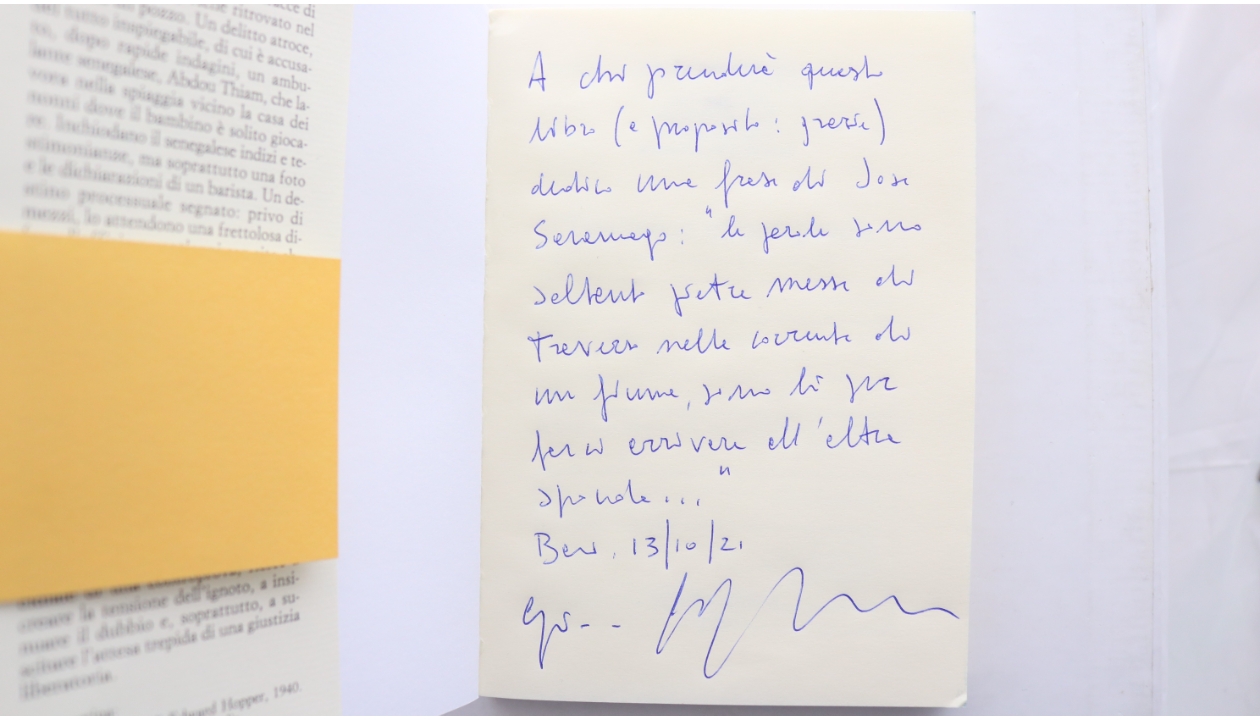 cce di
ritrovato nel
pozzo. Un delitto atroce,
tanto inspiegabile, di cui è accusa-
to, dopo rapide indagini, un ambu-
lante senegalese, Abdou Thiam, che la-
vora nella spiaggia vicino la casa dei
nonni dove il bambino è solito gioca-
re. Inchiodano il senegalese indizi e te-
stimonianze, ma soprattutto una foto
e le dichiarazioni di un barista. Un de-
stino processuale segnato: privo di
mezzi, lo attendono una frettolosa di-
tensione dell'ignoto, a insi-
nuare il dubbio e, soprattutto, a su-
scitare l'attesa trepida di una giustizia
liberatoria.
Edward Hopper, 1940.
A chi prenderà questo
libro (a proposito: grazie)
dedico una frase di Jose
Saramago: "le parole sono
soltanto pietre messe di
traverso nella corrente di
un fiume, sono lì per
farci arrivare all'altra
sponda..."
Bari, 13/10/21